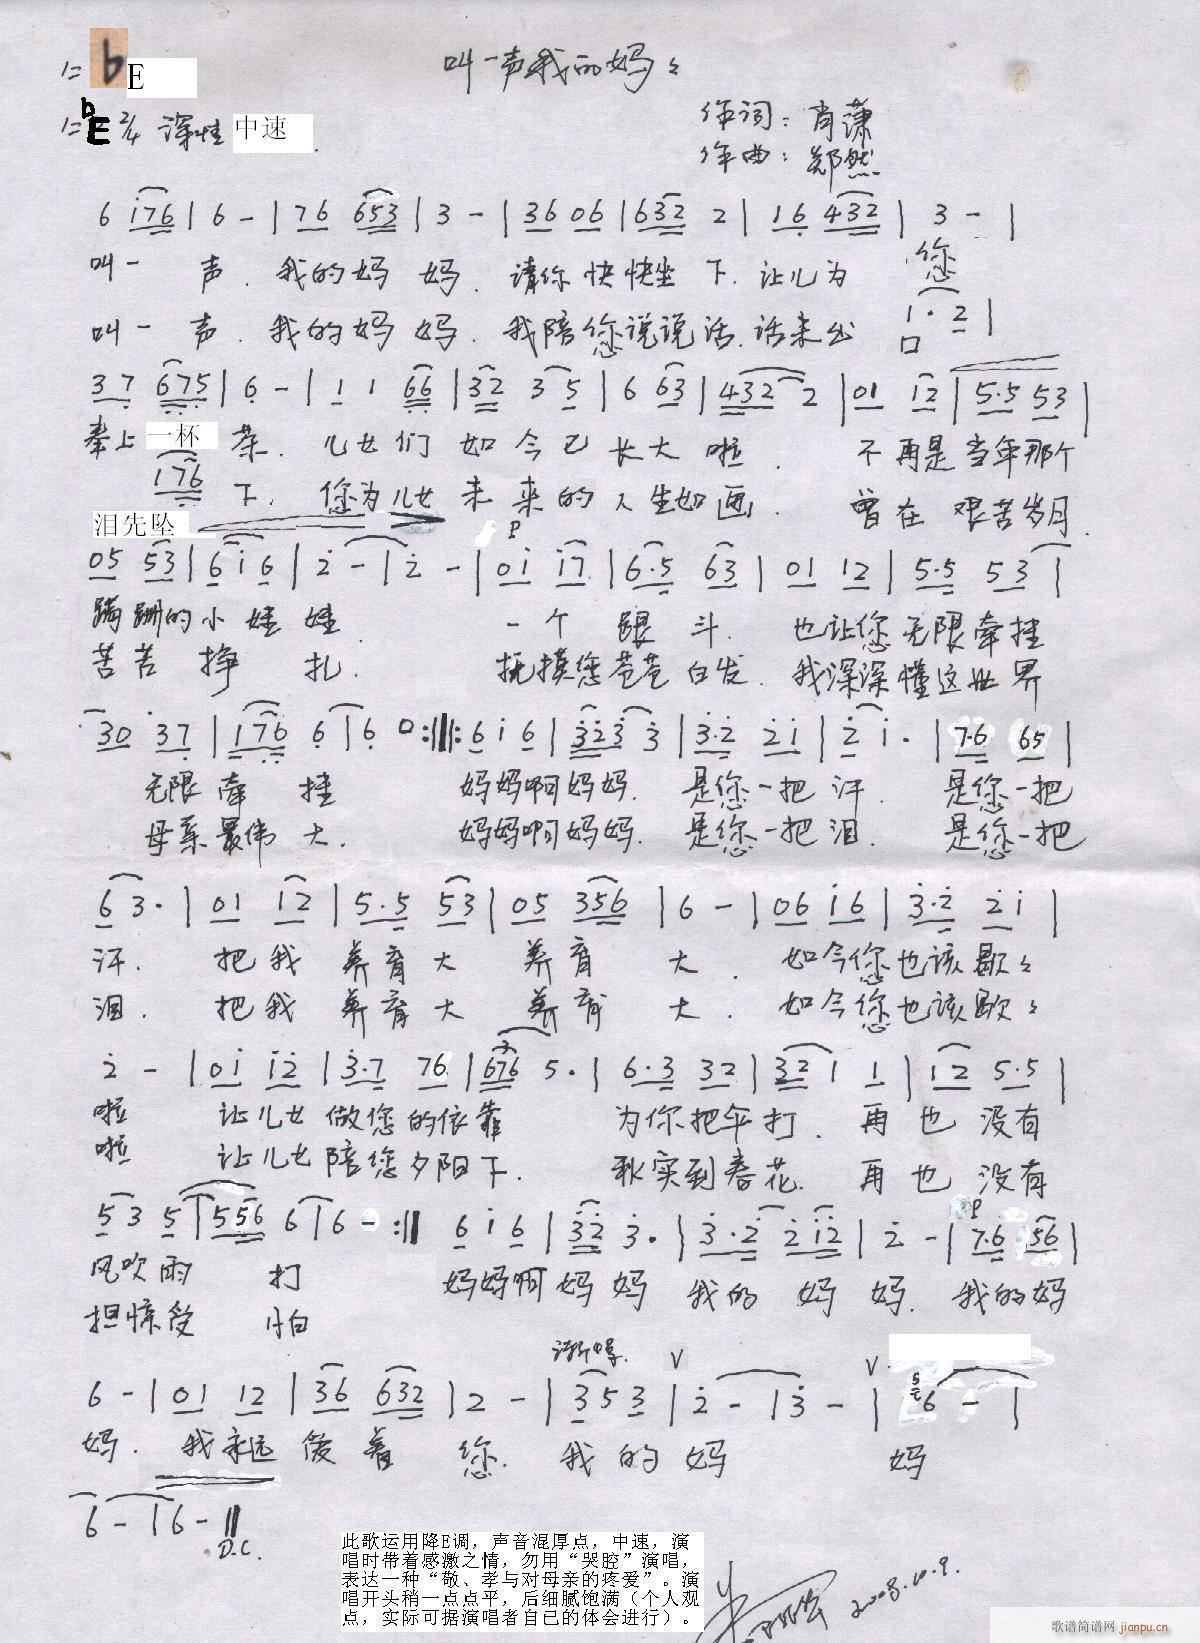 1= bE
叫一声我的妈妈
1= bE 2/4 深情 中速
作词：肖潇
作曲：郑然
6 i76 | 6 - | 76 653 | 3 - | 36 06 | 632 2 | 16 432 | 3 - |
叫一 声. 我的妈 妈. 请你快快坐 下. 让儿为 您
叫一 声. 我的妈 妈. 我陪您说说话. 话未出 口
1· 2 |
37 675 | 6 - | 1 1 66 | 32 3 5 | 6 63 | 432 2 | 01 12 | 5·5 53 |
奉上 一杯 茶. 儿女们 如今已 长大 啦. 不再是当年那个
176
泪先坠 下. 您为儿女 未来的人生如画. 曾在艰苦岁月.
p
05 53 | 6 i 6 | 2 - | 2 - | 0i i7 | 6·5 63 | 01 12 | 5·5 53 |
蹒跚的小娃 娃. 一个 跟斗. 也让您无限牵挂
苦苦挣 扎. 抚摸您苍苍白发. 我深深懂这世界
30 37 | 176 6 | 6 0 :||: 6 i 6 | 323 3 | 3·2 2i | 2 i· | 7·6 65 |
无限牵 挂 妈妈啊妈妈. 是您一把汗. 是您一把
母亲最伟大. 妈妈啊妈妈. 是您一把泪. 是您一把
6 3· | 01 12 | 5·5 53 | 05 356 | 6 - | 06 i6 | 3·2 2i |
汗. 把我 养育大 养育 大. 如今您也该歇歇
泪. 把我 养育大 养育 大. 如今您也该歇歇
2 - | 0i i2 | 3·7 76 | 676 5· | 6·3 32 | 32 1 1 | 12 5·5 |
啦 让儿女做您的依靠 为你把伞打. 再也没有
啦 让儿女陪您夕阳下. 秋实到春花. 再也没有
p
53 5 | 556 6 | 6 - :|| 6 i 6 | 32 3· | 3·2 2i2 | 2 - | 7·6 56 |
风吹雨 打 妈妈啊妈妈 我的妈妈. 我的妈
担惊受 怕
渐慢. V V
6 - | 01 12 | 36 632 | 2 - | 3 5 3 | 2 - | 3 - | 6 - |
妈. 我永远 爱着 您. 我的妈 妈
6 - | 6 - ||
D.C.
此歌运用降E调，声音混厚点，中速，演
唱时带着感激之情，勿用“哭腔”演唱，
表达一种“敬、孝与对母亲的疼爱”。演
唱开头稍一点点平，后细腻饱满（个人观
点，实际可据演唱者自己的体会进行）。
2008.10.9.
歌谱简谱网 jianpu.cn